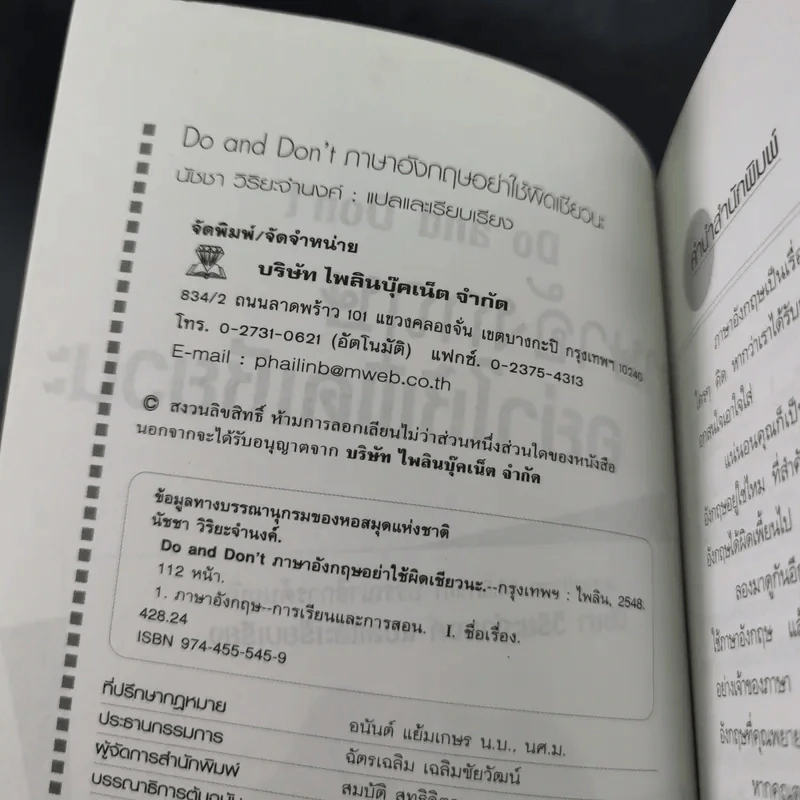 Do and Don't ภาษาอังกฤษอย่าใช้ผิดเชียวนะ
นัชชา วิริยะจำนงค์ : แปลและเรียบเรียง
จัดพิมพ์/จัดจำหน่าย
บริษัท ไพลินบุ๊คเน็ต จำกัด
834/2 ถนนลาดพร้าว 101 แขวงคลองจั่น เขตบางกะปิ กรุงเทพฯ 10240
โทร. 0-2731-0621 (อัตโนมัติ) แฟกซ์. 0-2375-4313
E-mail : phailinb@mweb.co.th
© สงวนลิขสิทธิ์ ห้ามการลอกเลียนไม่ว่าส่วนหนึ่งส่วนใดของหนังสือ
นอกจากจะได้รับอนุญาตจาก บริษัท ไพลินบุ๊คเน็ต จำกัด
ข้อมูลทางบรรณานุกรมของหอสมุดแห่งชาติ
นัชชา วิริยะจำนงค์.
Do and Don't ภาษาอังกฤษอย่าใช้ผิดเชียวนะ.--กรุงเทพฯ : ไพลิน, 2548.
112 หน้า.
1. ภาษาอังกฤษ--การเรียนและการสอน. I. ชื่อเรื่อง.
428.24
ISBN 974-455-545-9
ที่ปรึกษากฎหมาย อนันต์ แย้มเกษร น.บ., นศ.ม.
ประธานกรรมการ ฉัตรเฉลิม เฉลิมชัยวัฒน์
ผู้จัดการสำนักพิมพ์
บรรณาธิการต้นฉบับ
คำนำสำนักพิมพ์
ภาษาอังกฤษเป็นเรื่อ
ใครๆ คิด หากว่าเราได้รับ
แน่นอนคุณก็เป็น
อังกฤษอยู่ใช่ไหม ที่สำคั
อังกฤษได้ผิดเพี้ยนไป
ลองมาดูกันอี
ใช้ภาษาอังกฤษ แล้
อย่างเจ้าของภาษา
อังกฤษที่คุณพยาย
หากคุณ